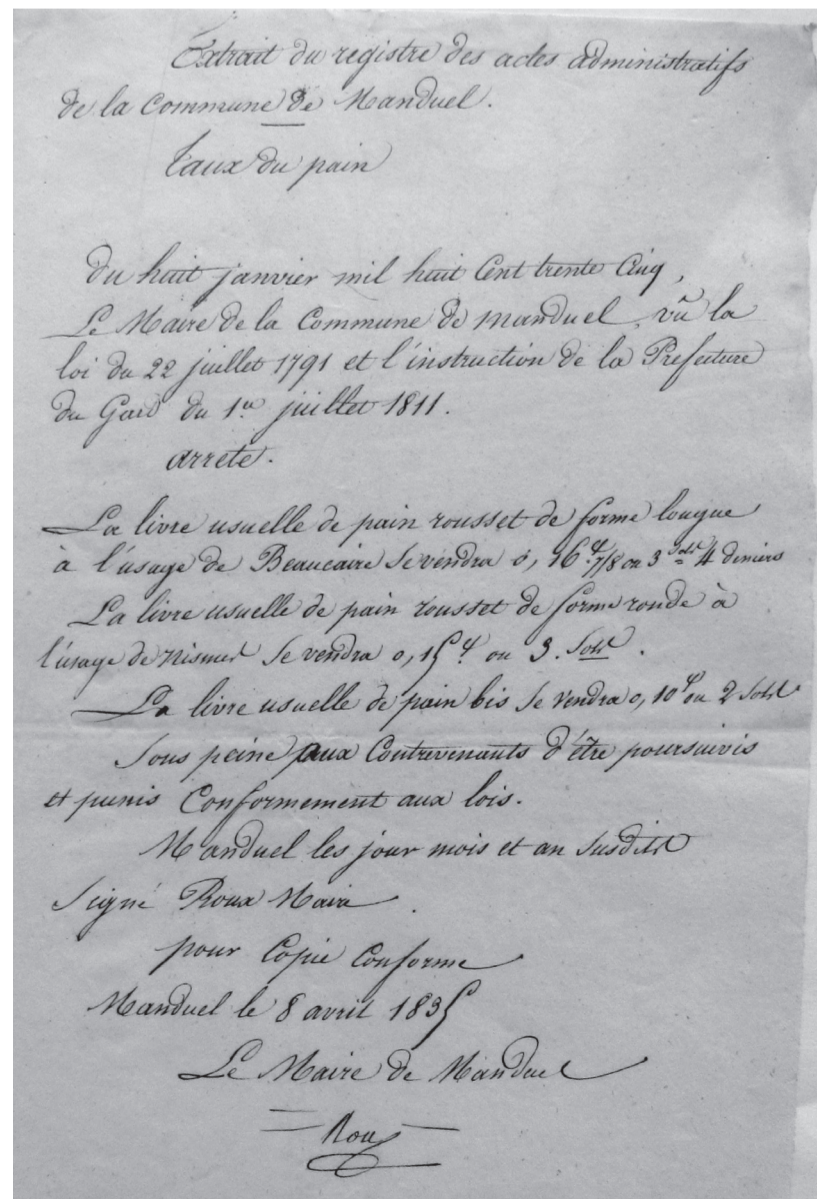 Extrait du registre des actes administratifs
de la Commune de Manduel.
Taux du pain
Du huit janvier mil huit Cent trente Cinq,
Le Maire de la Commune de manduel, vû la
loi du 22 juillet 1791 et l'instruction de la Prefecture
du Gard du 1er juillet 1811.
arrete.
La livre usuelle de pain rousset de forme longue
à l'usage de Beaucaire se vendra 0, 16 c 7/8 ou 3 sols 4 deniers
La livre usuelle de pain rousset de forme ronde à
l'usage de Nismes se vendra 0, 15 c ou 3. Sols.
La livre usuelle de pain bis se vendra 0, 10 c ou 2 Sols
Sous peine aux Contrevenants d'être poursuivis
et punis Conformement aux lois.
Manduel les jour mois et an susdits
Signé Roux Maire.
pour Copie Conforme
Manduel le 8 avril 1835
Le Maire de Manduel
Roux